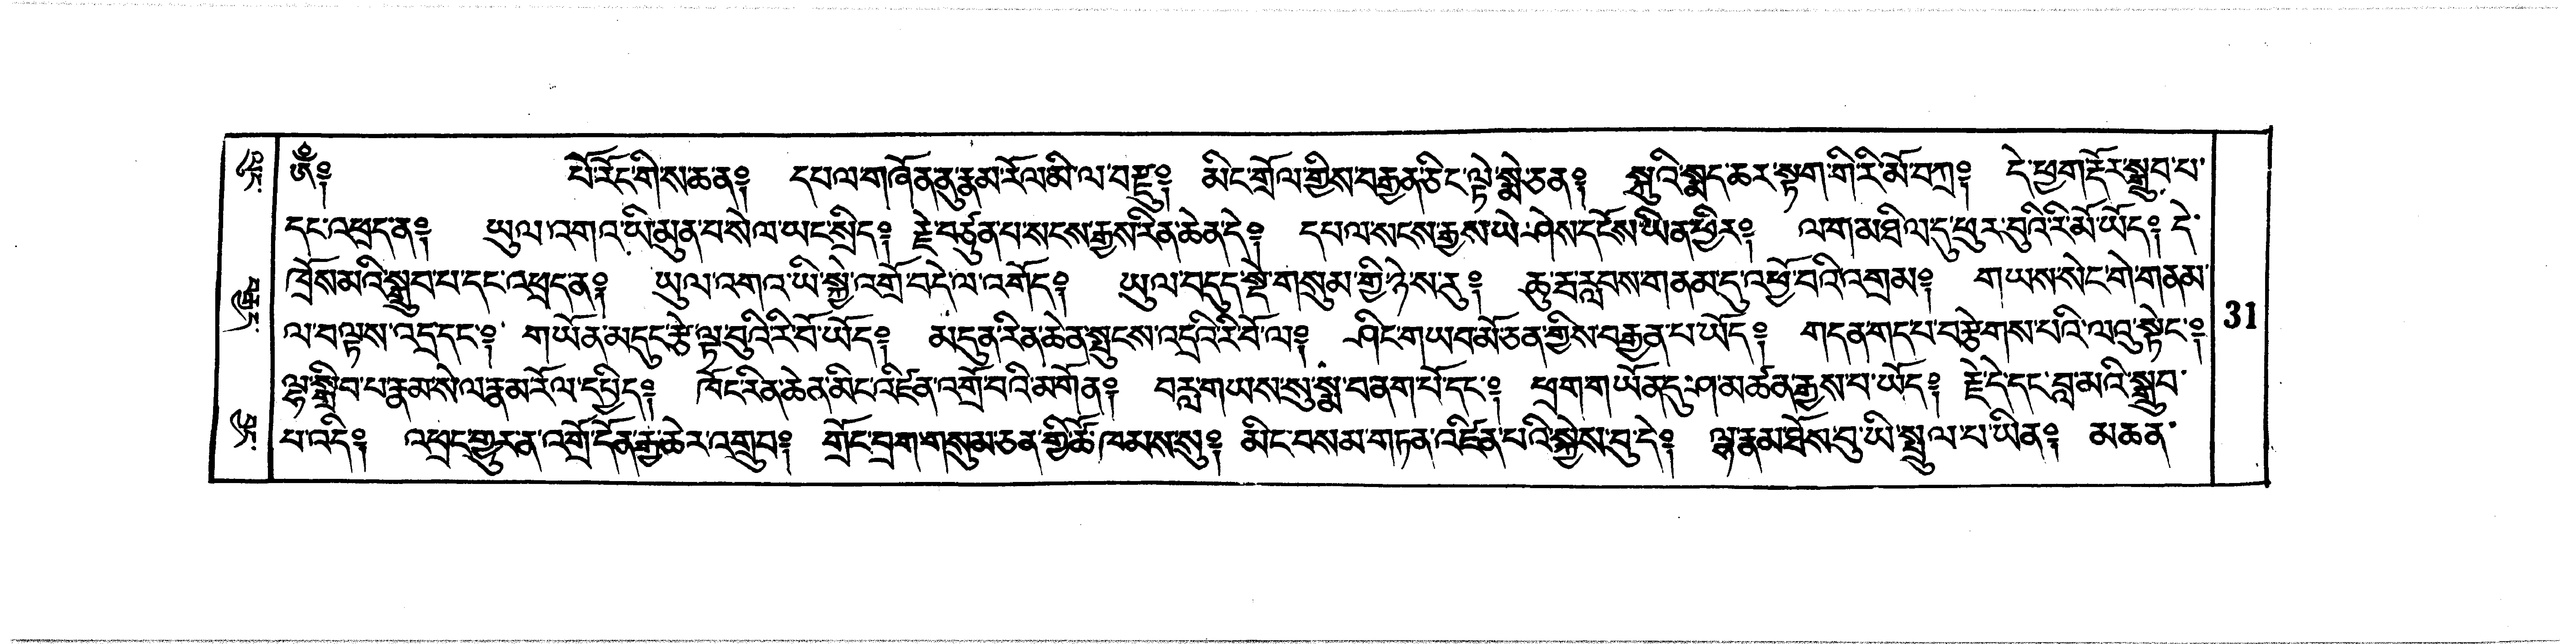 ༀ༔ པོ་རོང་གིས་ཆན༔ དཔལ་གཞོན་ནུ་རྣམ་རོལ་མི་ལ་བརྫུ༔ མིང་གྲོལ་གྱིས་བརྒྱན་ཅིང་ལྟེ་སྨེ་ཅན༔ སྐུའི་སྨད་ཆར་སྟག་གི་རི་མོ་བཀྲ༔ དེ་ཕྱག་རྡོར་སྒྲུབ་པ་
དང་འཕྲད་ན༔ ཡུལ་འགའ་ཡི་མུན་པ་སེལ་ཡང་སྲིད༔ རྗེ་བཙུན་པ་སངས་རྒྱས་རིན་ཆེན་དེ༔ དཔལ་སངས་རྒྱས་ཡེ་ཤེས་དངོས་ཡིན་ཕྱིར༔ ལག་མཐིལ་དུ་ཕུར་བུའི་རི་མོ་ཡོད༔ དེ་
ཁྲོས་མའི་སྒྲུབ་པ་དང་འཕྲད་ན༔ ཡུལ་འགའ་ཡི་སྐྱེ་འགྲོ་བདེ་ལ་འགོད༔ ཡུལ་བདུད་སྡེ་གསུམ་གྱི་ཉེ་ས་རུ༔ ཆུ་རྦ་རླབས་གནམ་དུ་འཕྱོ་བའི་འགྲམ༔ གཡས་སེང་གེ་གནམ་
ལ་བལྟས་འདྲ་དང་༔ གཡོན་མདུང་རྩེ་ལྟ་བུའི་རི་བོ་ཡོད༔ མདུན་རིན་ཆེན་སྤུངས་འདྲའི་རི་བོ་ལ༔ ཤིང་གཡབ་མོ་ཅན་གྱིས་བརྒྱན་པ་ཡོད༔ གདན་གད་པ་བརྩེགས་པའི་ལའུ་སྟེང་༔
ལྷ་སྒྲིབ་པ་རྣམ་སེལ་རྣམ་རོལ་དཔྱིད༔ ཁོང་རིན་ཆེན་མིང་འཛིན་འགྲོ་བའི་མགོན༔ བརླ་གཡས་སུ་སྨ་བ་ནག་པོ་དང་༔ ཕྲག་གཡོན་དུ་ཤ་མཚན་རྒྱས་པ་ཡོད༔ རྗེ་དེ་དང་བླ་མའི་སྒྲུབ་
པ་འདི༔ འཕྲང་གྱུར་ན་འགྲོ་དོན་རྒྱ་ཆེར་འགྲུབ༔ གྲོང་བྲག་གསུམ་ཅན་གྱི་ཚོ་ཁམས་སུ༔ མིང་བསམ་གཏན་འཛིན་པའི་སྐྱེས་བུ་དེ༔ ལྷ་རྣམ་ཐོས་བུ་ཡི་སྤྲུལ་པ་ཡིན༔ མཆན་
31